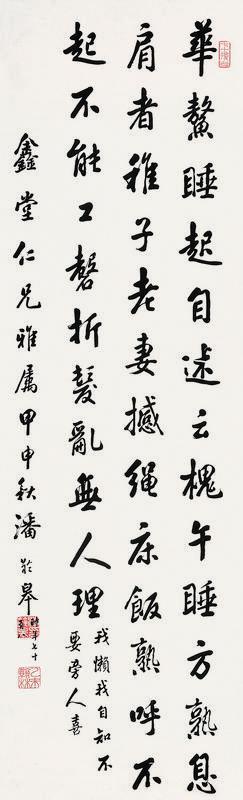 華鰲睡起自述云槐午睡方熟息
肩者稚子老妻撼繩床飯熟呼不
起不能工磬折髮亂無人理
我懶我自知不
要旁人喜
鑫堂仁兄雅屬甲申秋潘齡皋
時年七十